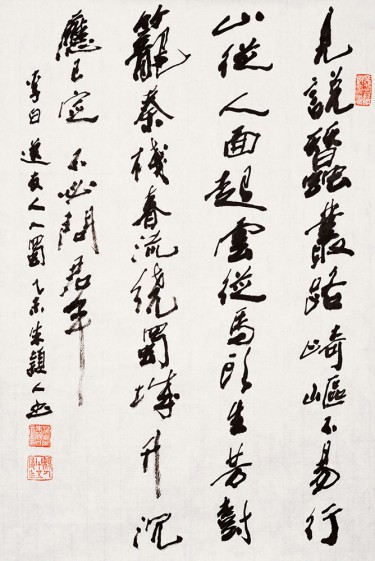 見說蠶叢路崎嶇不易行
山從人面起雲從馬頭生芳樹
籠秦棧春流繞蜀城升沉
應已定不必問君平
李白送友人入蜀乙未朱穎人書